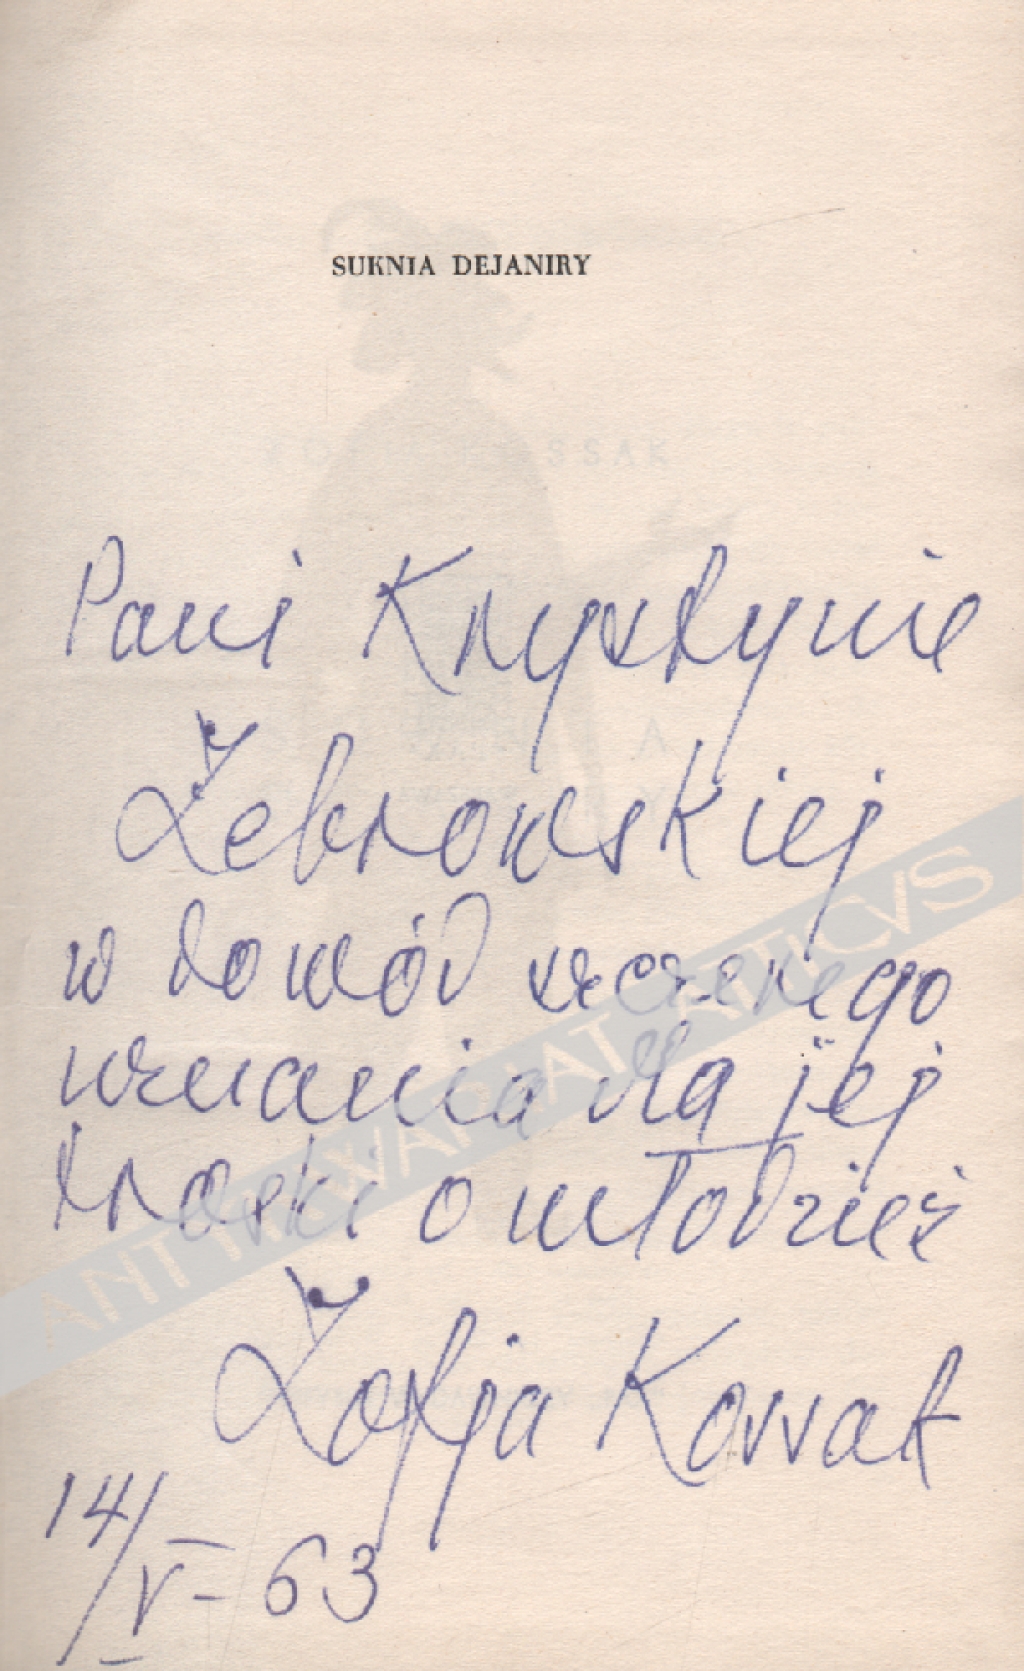 SUKNIA DEJANIRY
SSAK
Pani Krystynie
Żebrowskiej
w dowód szczerego
uznania dla jej
troski o młodzież
Zofja Kossak
14/V-63
ANTYKWARIAT ATTICVS